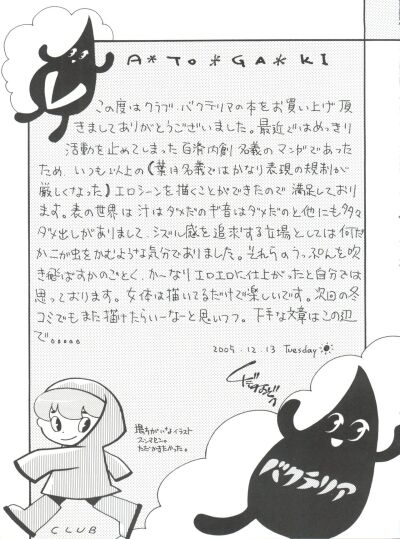 A*TO*GA*KI
この度はクラブ・バクテリアの本をお買い上げ頂
きましてありがとうございました。最近ではめっきり
活動を止めてしまった自滑内創名義のマンガであった
ため、いつも以上の(葉は名義ではかなり表現の規制が
厳しくなった)エロシーンを描くことができたので満足しており
ます。表の世界は汁はダメだのギ音はダメだのと他にも多々
ダメ出しがありまして、シズル感を追求する立場としては何だ
かこが虫をかむような気分でありました。それらのうっぷんを吹
き飛ばすかのごとく、かーなりエロエロに仕上がったと自分では
思っております。女体は描いてるだけで楽しいです。次回の冬
コミでもまた描けたらいーなーと思いつつ。下手な文章はこの辺
で。。。。。
2005.12.13 Tuesday
場ちがいなイラスト
スンマセン。
ただかきたかった。
バクテリア
CLUB